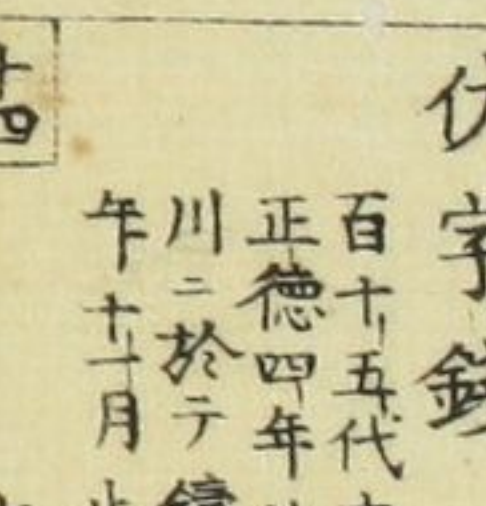 伏字錢
百十五代
正徳四年
川ニ於テ
年十一月
十四